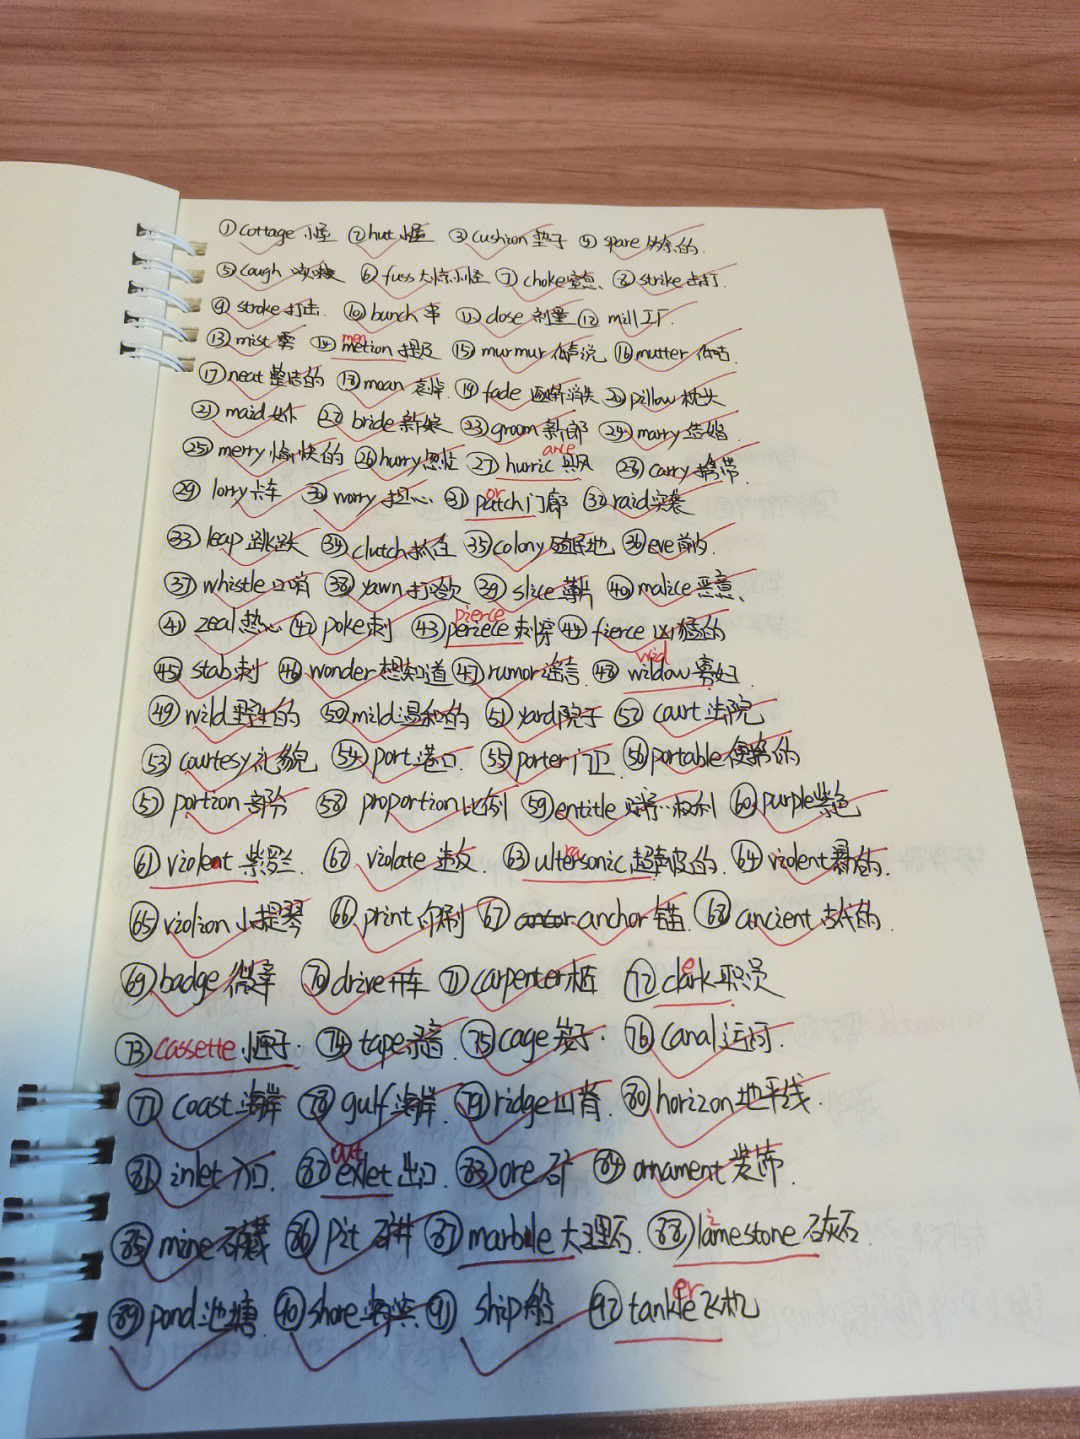 ①cottage 小屋 ②hut 小屋 ③cushion 垫子 ④spare 多余的.
⑤cough 咳嗽 ⑥fuss 大惊小怪 ⑦choke 窒息、⑧strike 击打.
⑨stroke 打击. ⑩bunch 串 ⑪dose 剂量 ⑫mill 工厂.
⑬mist 雾 ⑭metion men 提及 ⑮murmur 低声说 ⑯mutter 低咕
⑰neat 整洁的 ⑱moan 哀悼 ⑲fade 逐渐消失 ⑳pillow 枕头
㉑maid 女仆 ㉒bride 新娘 ㉓groom 新郎 ㉔marry 结婚.
㉕merry 愉快的 ㉖hurry 匆忙 ㉗hurric ane 飓风 ㉘carry 携带.
㉙lorry 卡车 ㉚worry 担心 ㉛patch or 门廊 ㉜raid 突袭
㉝leap 跳跃 ㉞clutch 抓住 ㉟colony 殖民地 ㊱eve 前夕.
㊲whistle 口哨 ㊳yawn 打哈欠 ㊴slice 薄片 ㊵malice 恶意、
㊶zeal 热心 ㊷poke 刺 ㊸periece pierce 刺穿 ㊹fierce 凶猛的
㊺stab 刺 ㊻wonder 想知道 ㊼rumor 谣言 ㊽widow wid 寡妇
㊾wild 野生的 ㊿mild 温和的 51 yard 院子 52 court 法院
53 courtesy 礼貌 54 port 港口. 55 porter 门卫 56 portable 便携的
57 portion 部分 58 proportion 比例 59 entitle 赋予…权利 60 purple 紫色
61 violent 紫罗兰. 62 violate 违反 63 ultersonic ra 超声波的. 64 violent 暴力的.
65 violion 小提琴 66 print 印刷 67 anchor 锚. 68 ancient 古代的.
69 badge 徽章 70 drive 开车 71 carpenter 木匠 72 clark e 职员
73 cassette 小匣子. 74 tape 录音. 75 cage 笼子. 76 canal 运河.
77 coast 海岸 78 gulf 海岸 79 ridge 山脊. 80 horizon 地平线.
81 inlet 入口. 82 exlet out 出口 83 ore 矿 84 ornament 装饰.
85 mine 矿藏 86 pit 矿井 87 marbile 大理石. 88 lamestone i 石灰石.
89 pond 池塘. 90 shore 海滨 91 ship 船 92 tankle er 飞机